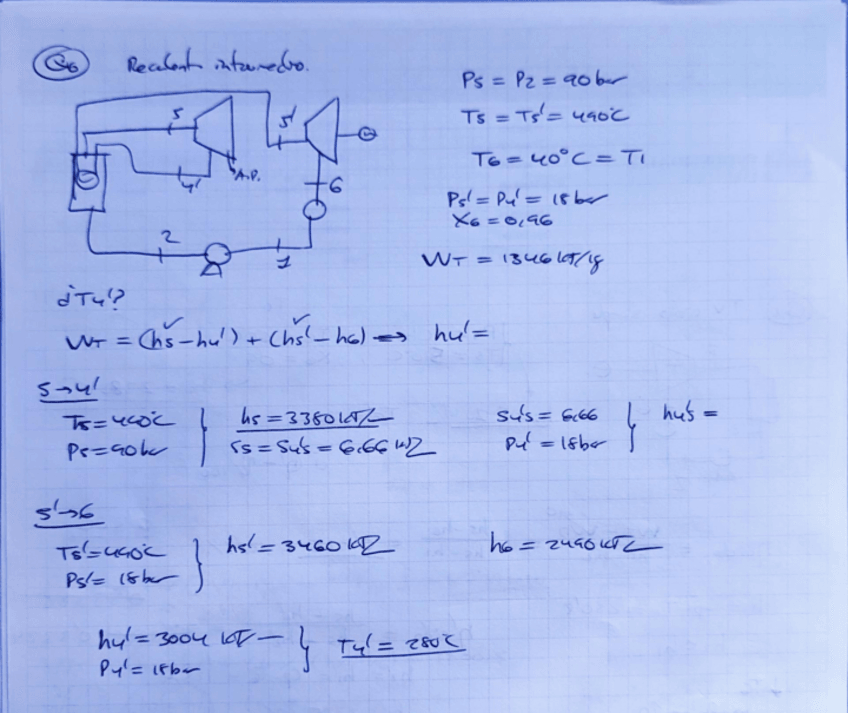 Q6 Recalent. intermedio.
P5 = P2 = 90 bar
T5 = T5' = 490°C
T6 = 40°C = T1
P5' = P4' = 18 bar
X6 = 0,96
WT = 1346 kJ/kg
5
5'
4'
A.P.
6
2
1
¿T4'?
WT = (h5 - h4') + (h5' - h6) => h4' =
5→4'
T5 = 490°C
P5 = 90 bar
h5 = 3380 kJ/
s5 = s4's = 6.66 kJ/
s4's = 6,66
P4' = 18 bar
h4's =
5'→6
T5' = 490°C
P5' = 18 bar
h5' = 3460 kJ/
h6 = 2490 kJ/
h4' = 3004 kJ/
P4' = 18 bar
T4' = 280°C